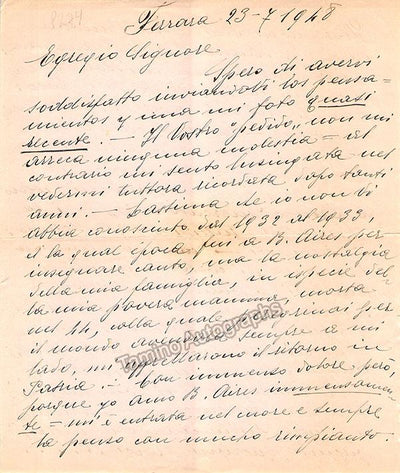 Ferrara 23-7-1948
Egregio Signore
Spero di avervi
soddisfatto inviandovi los pensa-
mientos y una mi foto quasi
recente. — Il vostro "pedido" non mi
arreca ninguna molestia = al
contrario mi sento lusingata nel
vedermi tuttora ricordata dopo tanti
anni. — Lastima che io non vi
abbia conosciuto dal 1932 al 1933,
la qual época fui a B. Aires per
insegnare canto, ma la nostalgia
della mia famiglia, in especie del-
la mia povera mamma, morta
nel 44, colla quale
il mondo sempre a mi
lado, mi il ritorno in
Patria. — Con immenso dolore però,
porque yo amo B. Aires immensamen-
te = mi è entrata nel cuore e sempre
la penso con mucho rimpianto.
Tamino Autographs